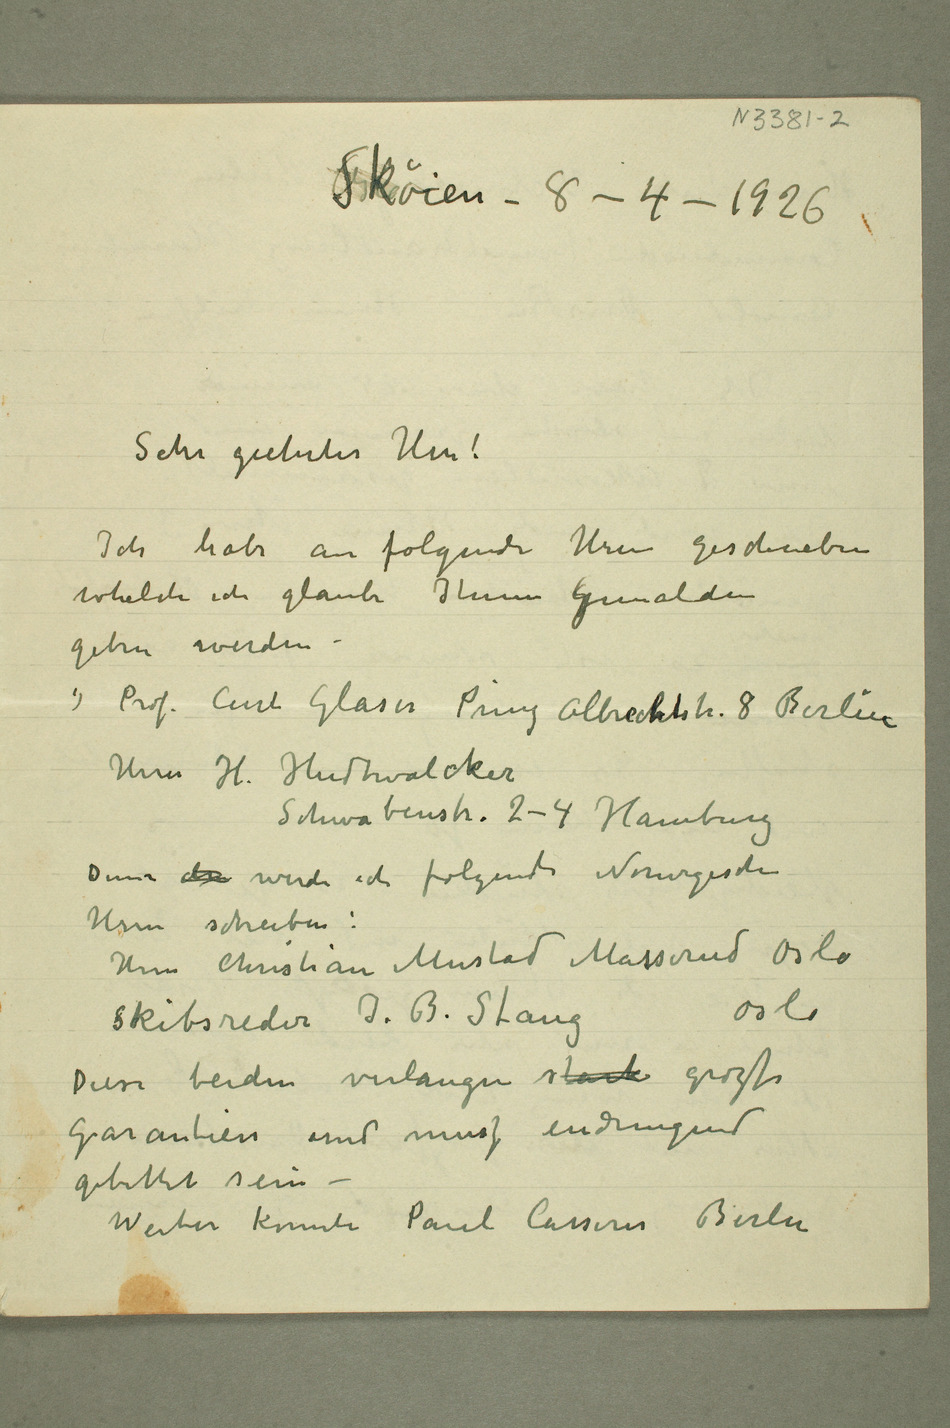 N3381-2
Skøien - 8 - 4 - 1926
Sehr geehrter Herr!
Ich habe an folgende Herrn geschrieben
whelche ich glaube Ihnen Gemälden
geben werden –
1) Prof. Curt Glaser Prinz Albrechtstr. 8 Berlin
Herrn H. Hudtwalcker
Schwabenstr. 2-4 Hamburg
Denn die werde ich folgende Norwegische
Herrn schreiben:
Herrn Christian Mustad Masserud Oslo
Skibsreder J. B. Stang Oslo
Diese beiden verlangen stark grozse
Garantien und musz eindringend
gebettet sein –
Weiter konnte Paul Casserer Berlin